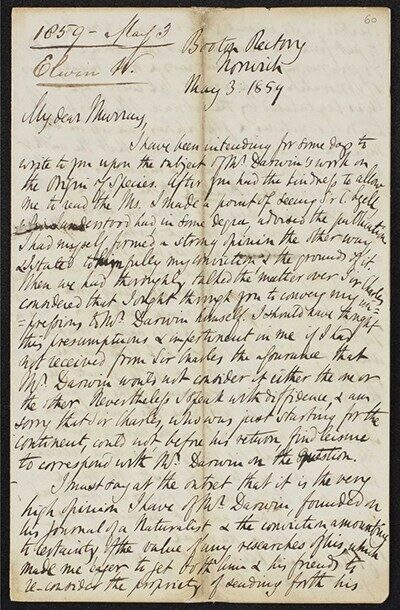 60
1859 - May 3
Elwin W.
Booton Rectory
Norwich
May 3. 1859
My dear Murray,
I have been intending for some days to
write to you upon the subject of Mr. Darwin's work on
the Origin of Species. After you had the kindness to allow
me to read the Ms. I made a point of seeing Sir C. Lyell
who I understood had in some degree advised the publication
I had myself formed a strong opinion the other way
& stated to him fully my conviction & the grounds of it.
When we had thoroughly talked the matter over Sir Charles
considered that I ought through you to convey my im-
pressions to Mr. Darwin himself. I should have thought
this presumptuous & impertinent in me if I had
not received from Sir Charles the assurance that
Mr. Darwin would not consider it either the one or
the other. Nevertheless I speak with diffidence, & am
sorry that Sir Charles, who was just starting for the
continent, could not before his return find leisure
to correspond with Mr. Darwin on the question.
I must say at the outset that it is the very
high opinion I have of Mr. Darwin, founded on
his Journal of a Naturalist & the conviction amounting
to certainty of the value of any researches of his, which
made me eager to get both him & his friends to
re-consider the propriety of sending forth his